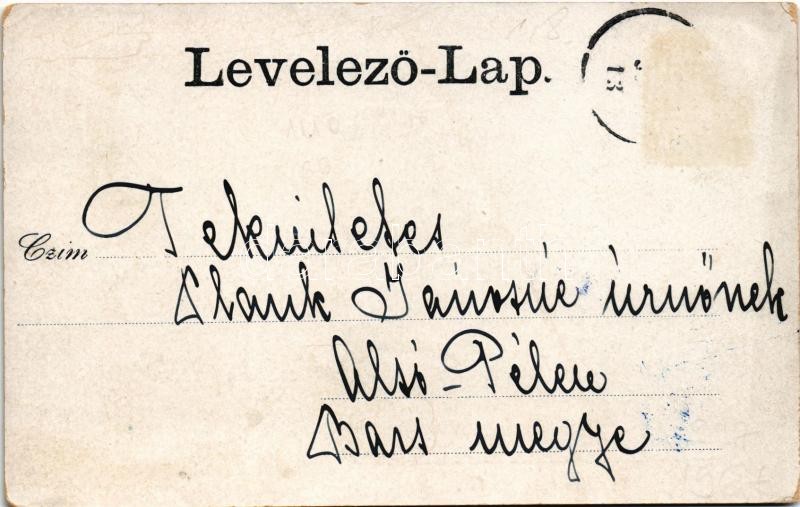 Levelező-Lap.
13
Czim
Tekintetes
Jánosné úrnőnek
Alsó-Pélen
Bars megye